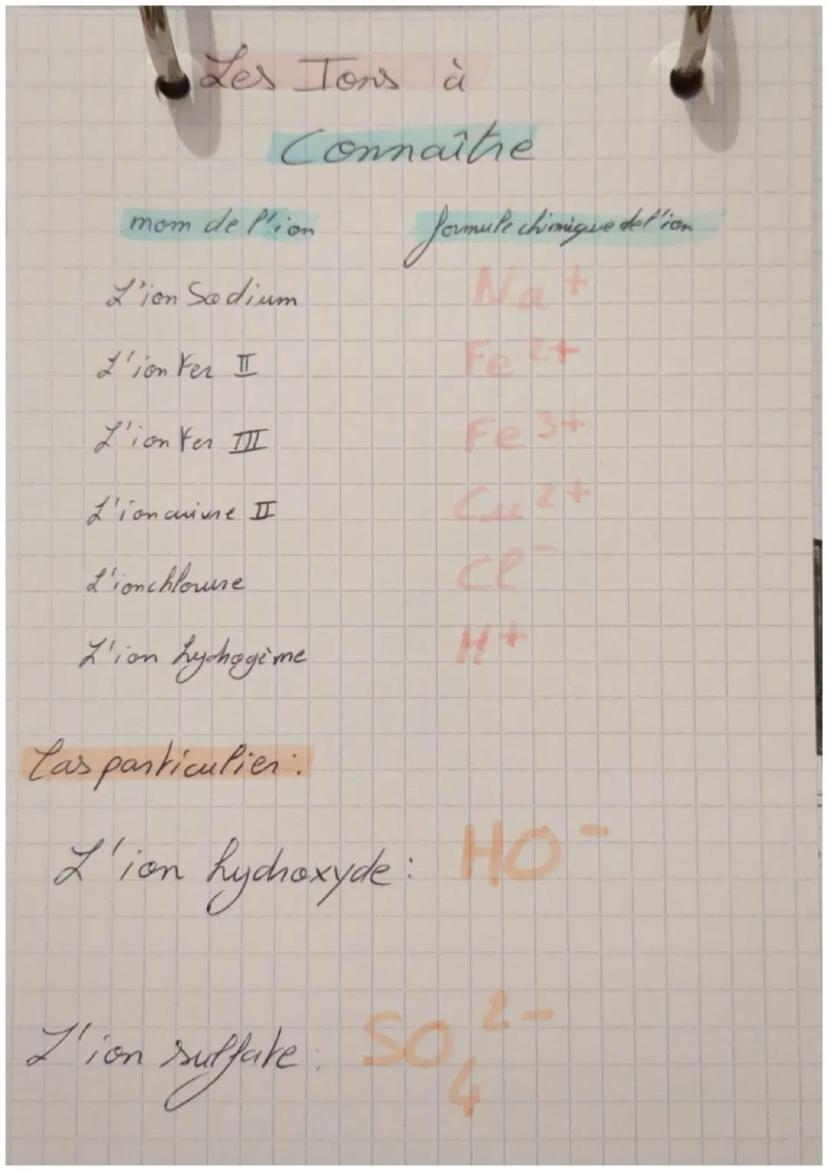 Les Ions à
Connaître
nom de l'ion formule chimique de l'ion
L'ion Sodium Na⁺
L'ion Fer II Fe²⁺
L'ion Fer III Fe³⁺
L'ion cuivre II Cu²⁺
L'ion chlorure Cl⁻
L'ion hydrogène H⁺
Cas particulier :
L'ion hydroxyde : HO⁻
L'ion sulfate : SO₄²⁻